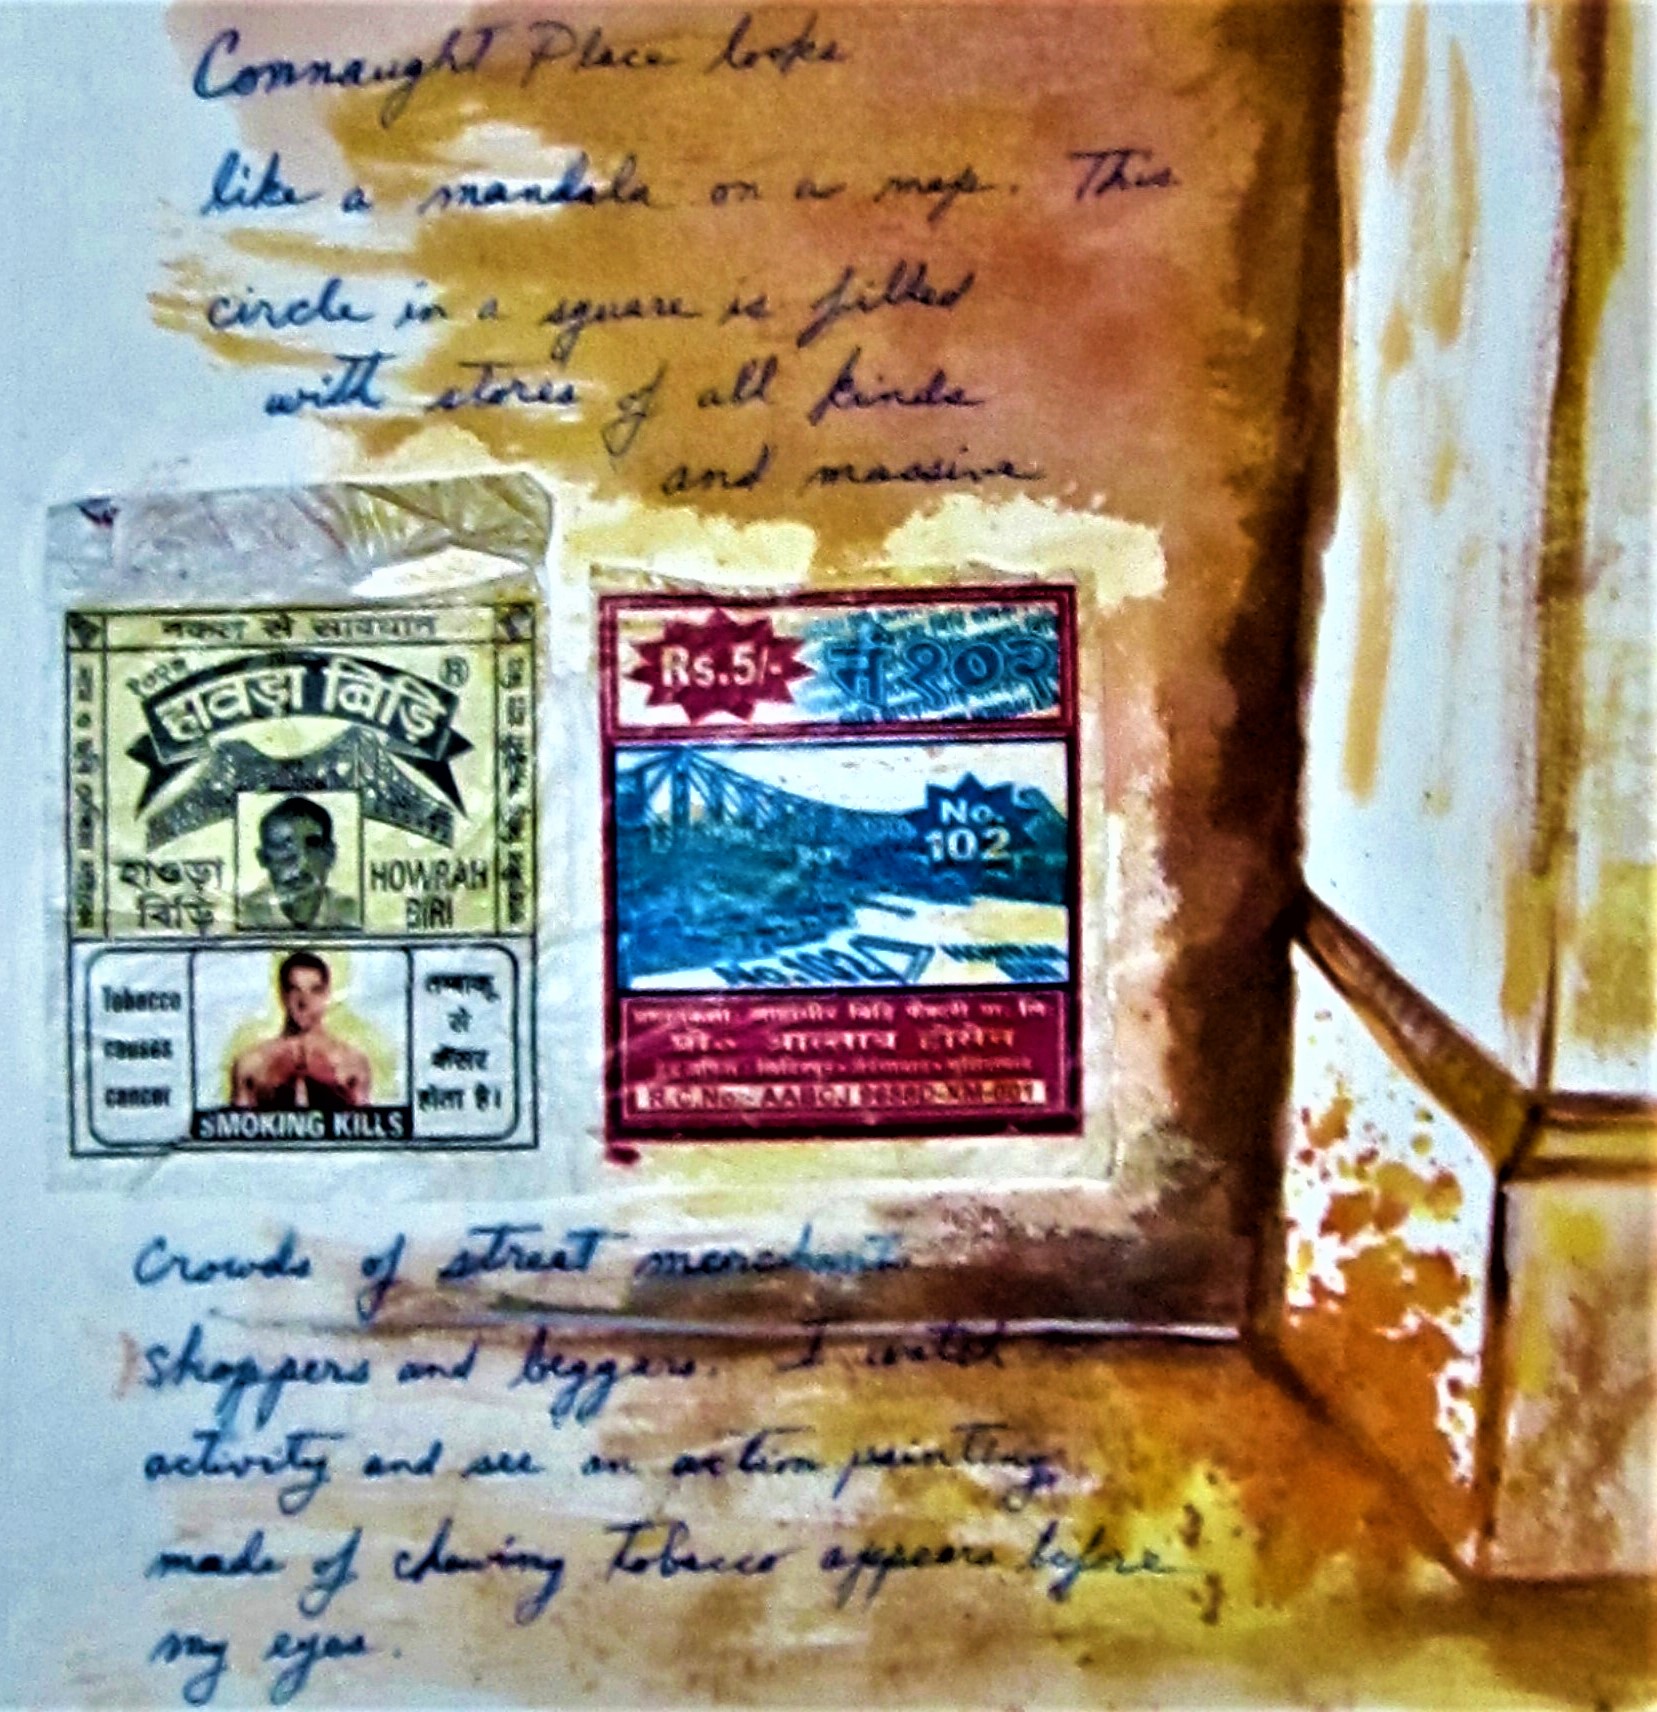 Connaught Place looks
like a mandala on a map. This
circle in a square is filled
with stores of all kinds
and massive
नकल से सावधान
हावड़ा बिड़ि ®
হাওড়া
বিড়ি
HOWRAH
BIRI
Tobacco
causes
cancer
SMOKING KILLS
तम्बाकू
से
कैंसर
होता है।
Rs.5/-
नं १०२
No.
102
No.102
प्रो०
R.C.No.-
crowds of street merchants
shoppers and beggars. I watch
activity and see an action painting
made of chewing tobacco appears before
my eyes.